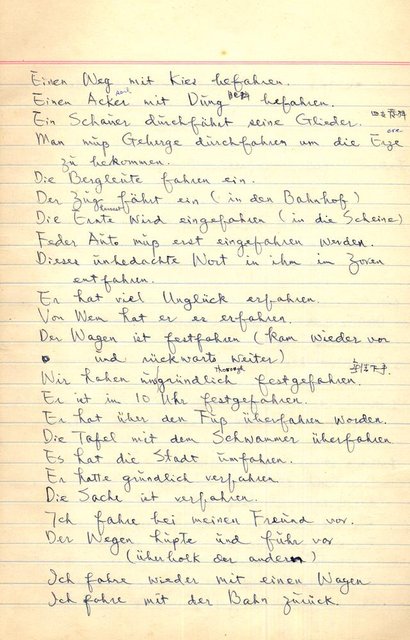 Einen Weg mit Kies befahren.
Einen Acker soil mit Dung 肥料 befahren.
Ein Schauer durchfährt seine Glieder.
Man müß Gebirge durchfahren um die Erze ore
zu bekommen.
Die Bergleüte fahren ein.
Der Züg fährt ein (in den Bahnhof)
Die Ernte wird eingefahren (in die Scheine)
Feder Aüto müß erst eingefahren werden.
Dieser ünbedachte Wort in ihm im Zoren
entfahren.
Er hat viel Unglück erfahren.
Von Wem hat er es erfahren.
Der Wagen ist festfahren (kam wieder vor
und rückwarts weiter)
Wir haben üngründlich thorough festgefahren.
Er ist in 10 Uhr festgefahren.
Er hat über den Füß überfahren worden.
Die Tafel mit dem Schwammer überfahren
Es hat die Stadt ümfahren.
Er hatte gründlich verfahren.
Die Sache ist verfahren.
Ich fahre bei meinen Freünd vor.
Der Wegen hüpte und führ vor
(überholt der andern)
Ich fahre wieder mit einen Wagen
Ich fahre mit der Bahn zürück.